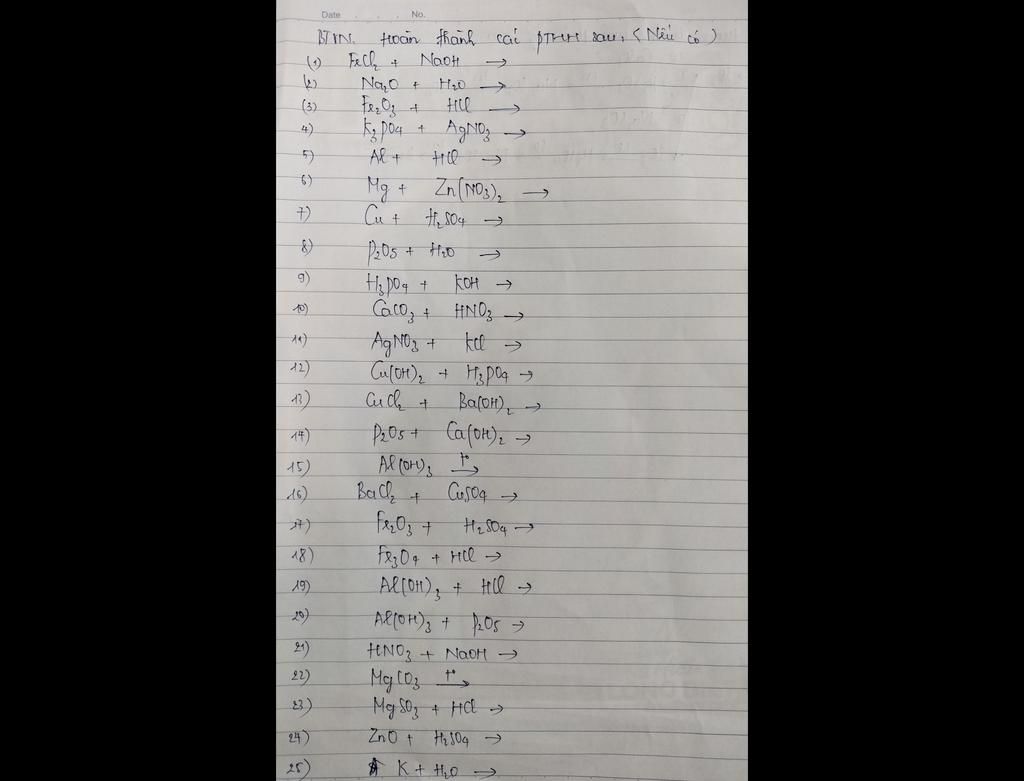 Date . . . No.
BTVN. Hoàn thành các PTHH sau, (Nếu có)
(1) FeCl₂ + NaOH →
(2) Na₂O + H₂O →
(3) Fe₂O₃ + HCl →
4) K₃PO₄ + AgNO₃ →
5) Al + HCl →
6) Mg + Zn(NO₃)₂ →
7) Cu + H₂SO₄ →
8) P₂O₅ + H₂O →
9) H₃PO₄ + KOH →
10) CaCO₃ + HNO₃ →
11) AgNO₃ + KCl →
12) Cu(OH)₂ + H₃PO₄ →
13) CuCl₂ + Ba(OH)₂ →
14) P₂O₅ + Ca(OH)₂ →
15) Al(OH)₃ t° →
16) BaCl₂ + CuSO₄ →
17) Fe₂O₃ + H₂SO₄ →
18) Fe₃O₄ + HCl →
19) Al(OH)₃ + HCl →
20) Al(OH)₃ + P₂O₅ →
21) HNO₃ + NaOH →
22) MgCO₃ t° →
23) MgSO₃ + HCl →
24) ZnO + H₂SO₄ →
25) K + H₂O →